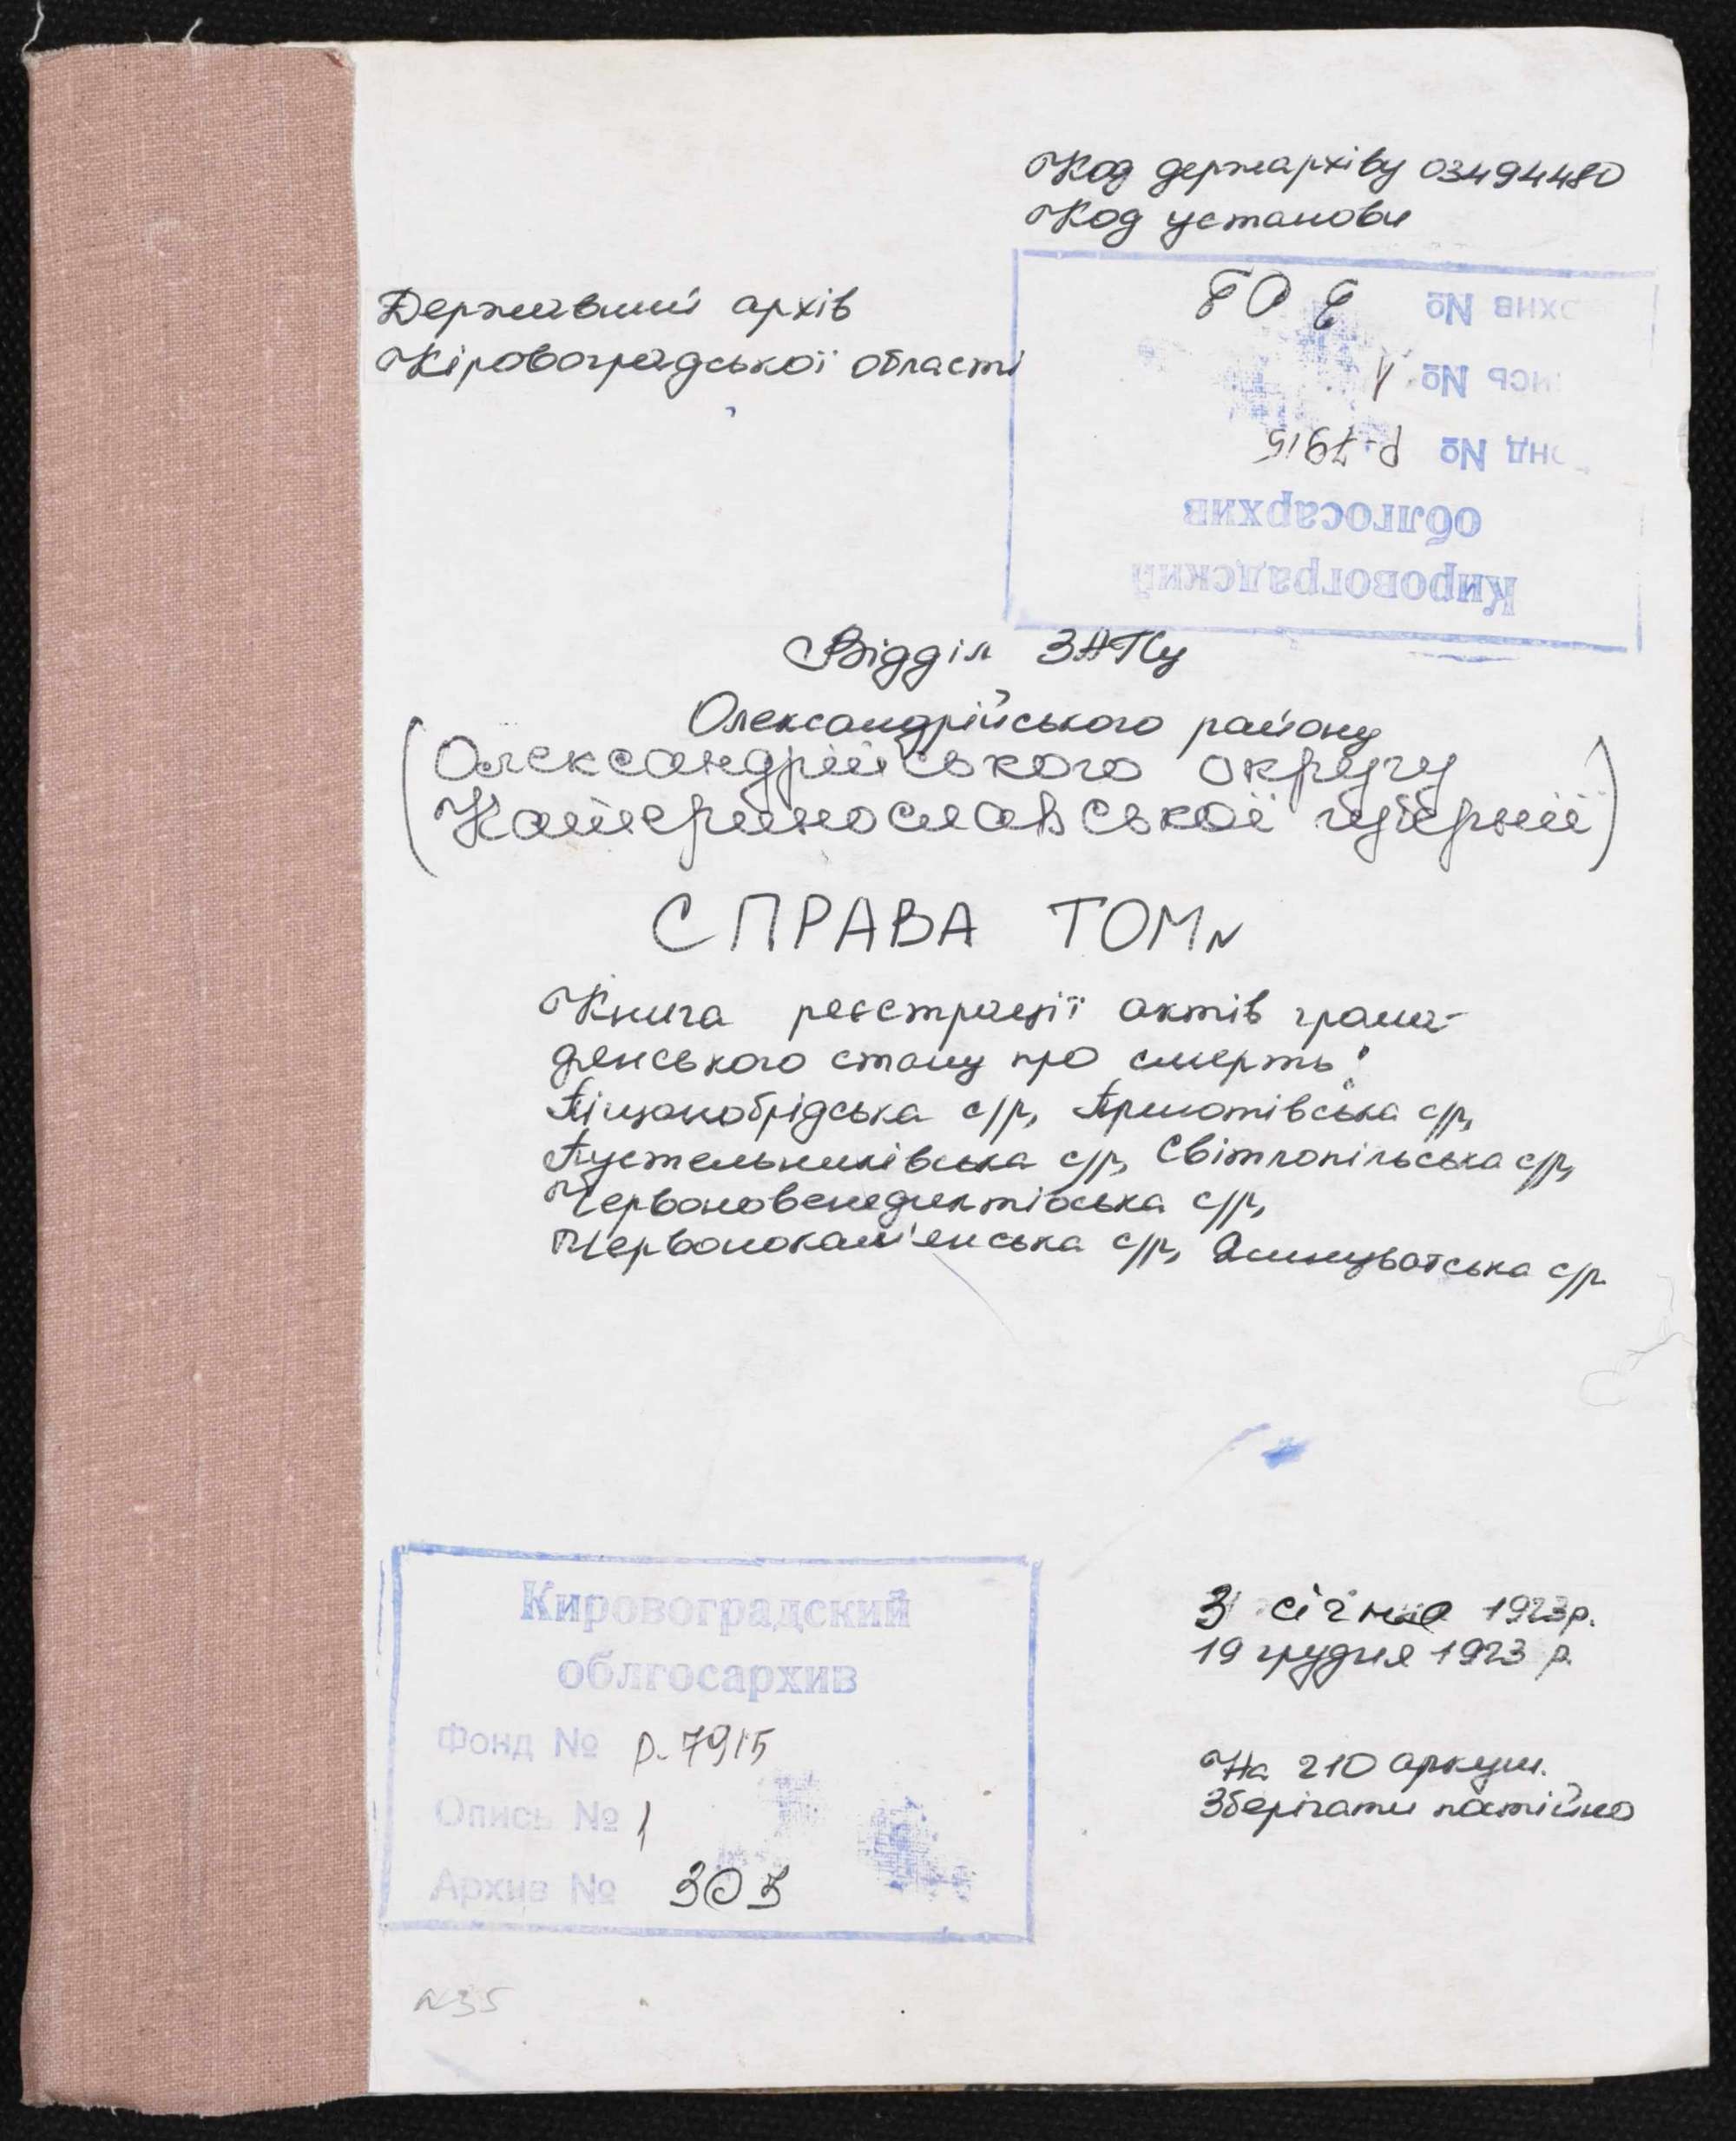 Код держархіву 03494480
Код установи
Державний архів
Кіровоградської області
Кировоградский
облгосархив
Фонд № Р-7915
Опись № 1
Архив № 303
Відділ ЗАГСу
Олександрійського району
(Олександрійського округу
Катеринославської губернії)
СПРАВА ТОМ №
Книга реєстрації актів грома-
дянського стану про смерть:
Піщанобрідська с/р, Приютівська с/р,
Пустельниківська с/р, Світлопільська с/р,
Червоновендиктівська с/р,
Червонокам'янська с/р, Ясинуватська с/р
3 січня 1923р.
19 грудня 1923 р.
На 210 аркуш.
Зберігати постійно
Кировоградский
облгосархив
Фонд № р-7915
Опись № 1
Архив № 303
№35